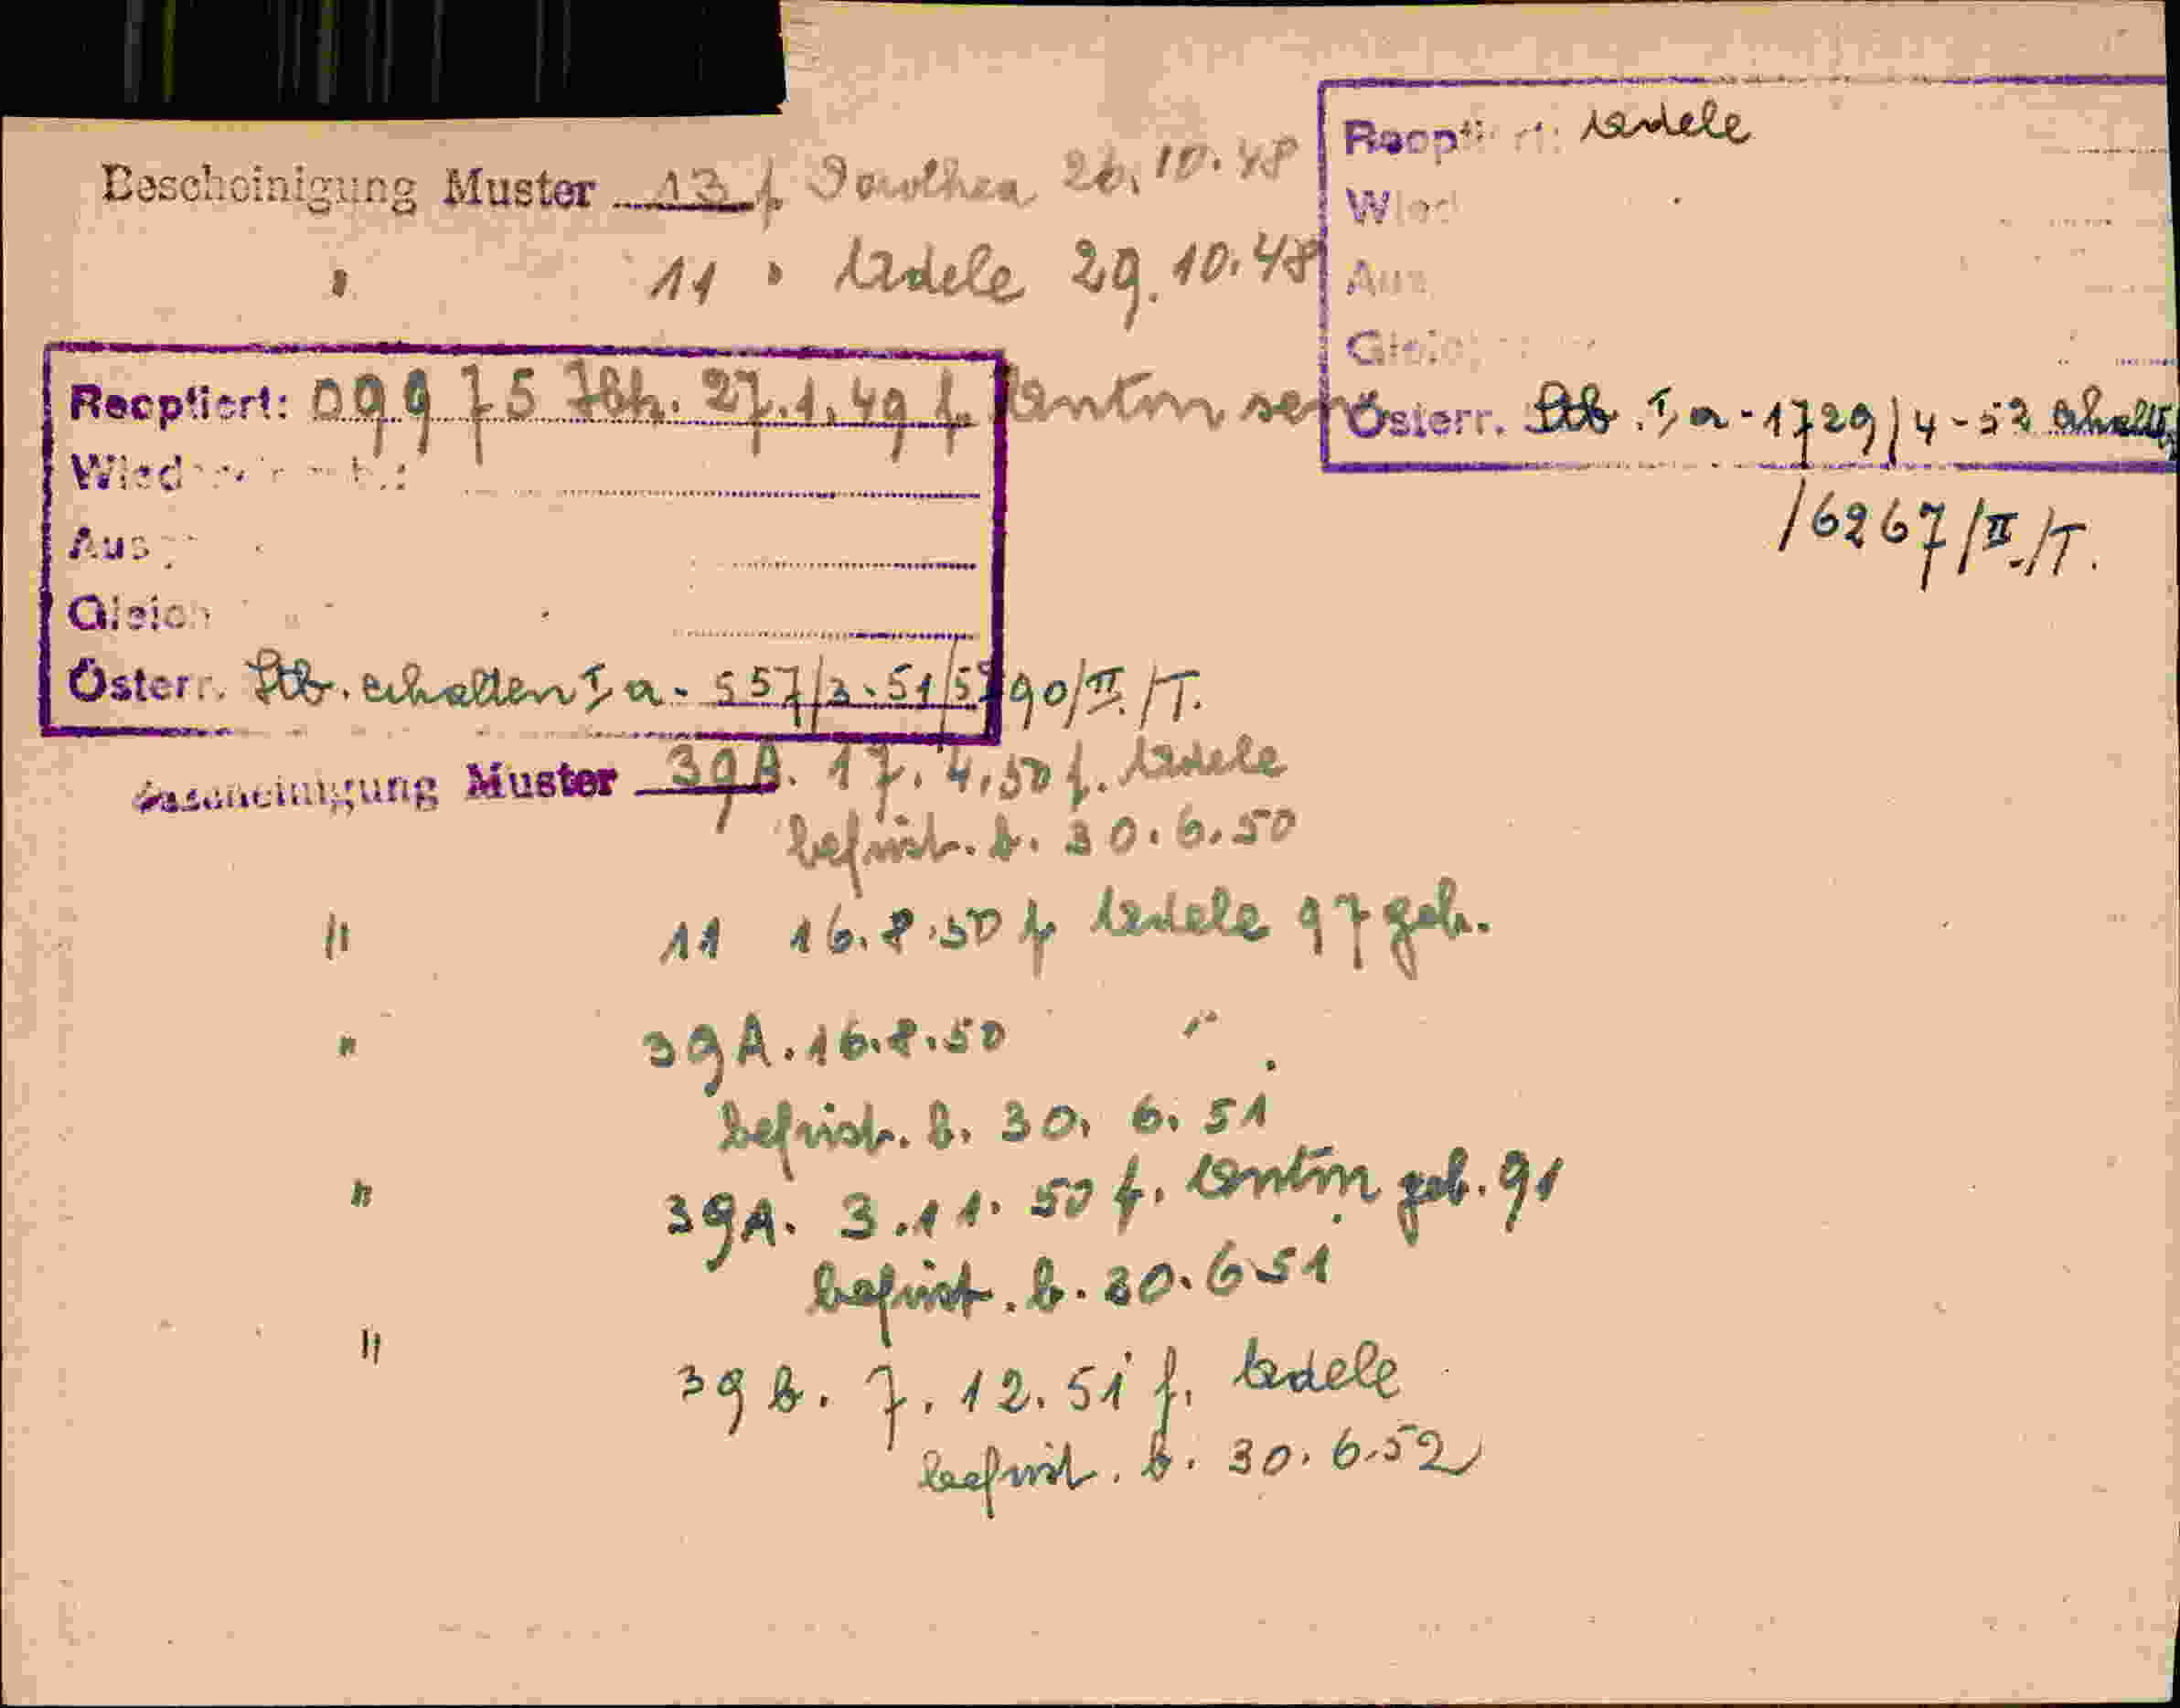 Bescheinigung Muster 13 f Dorothea 26.10.48
" 11 " Adele 29.10.48
Reoptiert: Adele
Wied
Aus
Gleich
Österr. Stb. I a-1729/4-52 erhalten
/6267/II./T.
Reoptiert: 09975 27.1.49 f. Anton sen
Wied
Aus
Gleich
Österr. Stb. erhalten I a. 557/3.51/5790/II./T.
Bescheinigung Muster 39A. 17.4.50 f. Adele
befrist. b. 30.6.50
" 11 16.8.50 f Adele 97 geb.
" 39A. 16.8.50 "
befrist. b. 30.6.51
" 39A. 3.11.50 f. Anton geb. 91
befrist. b. 30.6 51
" 39b. 7.12.51 f. Adele
befrist. b. 30.6.52